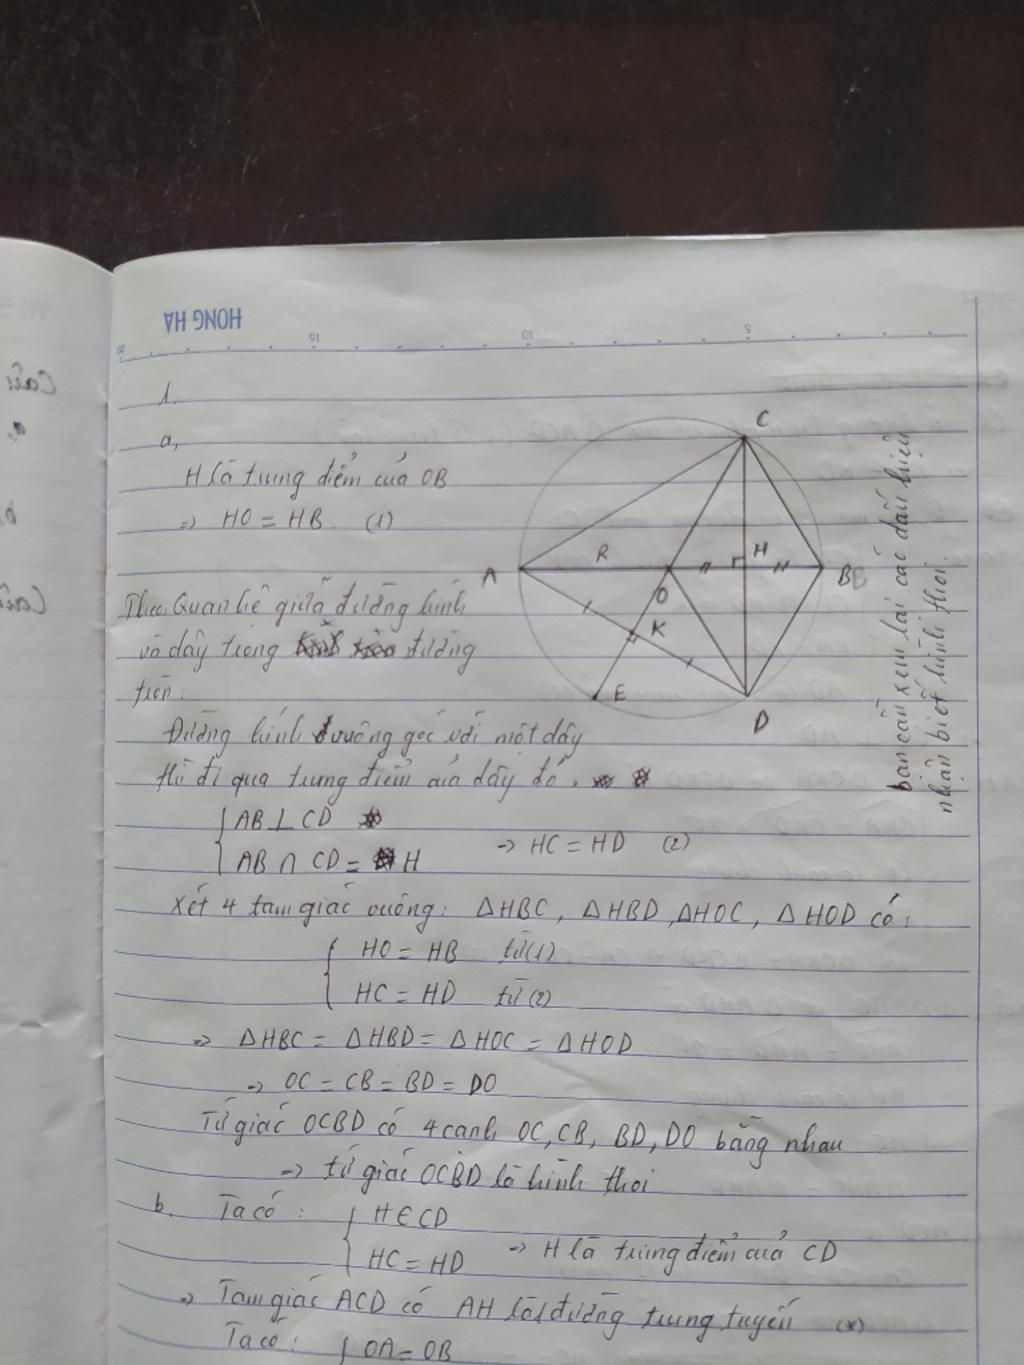 HONG HA
20 15 10 5
1.
a,
H là trung điểm của OB
=> HO = HB. (1)
Theo Quan hệ giữa đường kính
và dây trong đường
tròn:
Đường kính vuông góc với một dây
thì đi qua trung điểm của dây đó.
AB ⊥ CD
AB ∩ CD = H => HC = HD (2)
Xét 4 tam giác vuông: ΔHBC, ΔHBD, ΔHOC, ΔHOD có:
HO = HB từ (1)
HC = HD từ (2)
=> ΔHBC = ΔHBD = ΔHOC = ΔHOD
=> OC = CB = BD = DO
Tứ giác OCBD có 4 cạnh OC, CB, BD, DO bằng nhau
=> tứ giác OCBD là hình thoi
b. Ta có: H ∈ CD
HC = HD => H là trung điểm của CD
=> Tam giác ACD có AH là đường trung tuyến (*)
Ta có: OA = OB
C
R
H
A
B
O
K
E
D
bạn cần xem lại các dấu hiệu
nhận biết hình thoi.
Câu
a,
b,
Câu